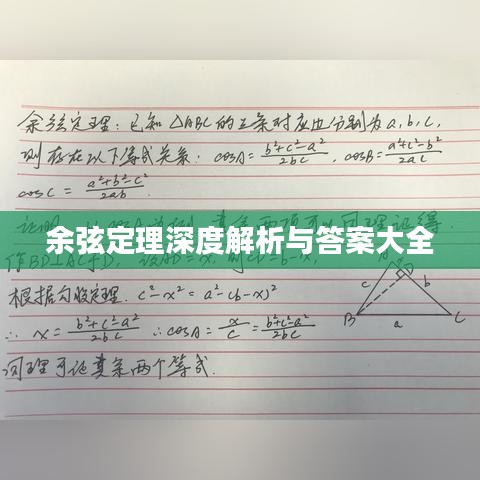 余弦定理：已知△ABC的三条对应边分别为a,b,c,
则存在以下等式关系：cosA=(b²+c²-a²)/(2bc), cosB=(a²+c²-b²)/(2ac)
cosC=(a²+b²-c²)/(2ab)
余弦定理深度解析与答案大全
作BD⊥AC于D
根据勾股定理. c²-x²=a²-(b-x)²
∴ x=(b²+c²-a²)/(2b) ∴cosA=x/c=(b²+c²-a²)/(2bc)
同理可证其余两个等式.
A
c
b
B
a
C